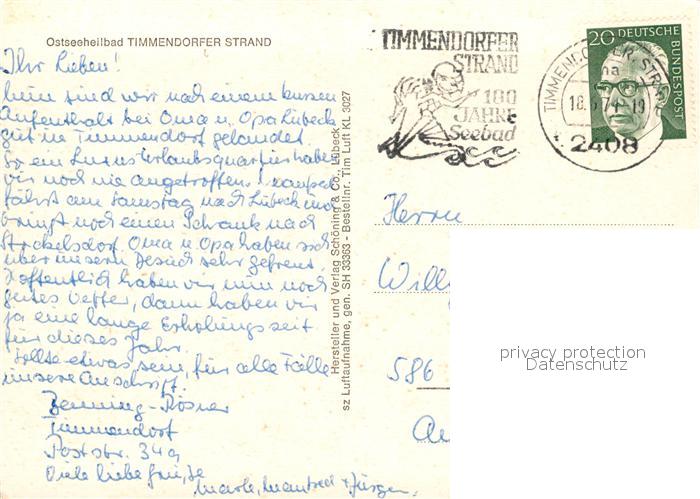 Ostseeheilbad TIMMENDORFER STRAND
Ihr Lieben!
nun sind wir nach einem kurzen
Aufenthalt bei Oma u. Opa Lübeck
gut in Timmendorf gelandet.
So ein Luxus Urlaubsquartier haben
wir noch nie angetroffen.
fährt am Samstag nach Lübeck und
bringt noch einen Schrank nach
Stockelsdorf. Oma u Opa haben sich
über unsern Besuch sehr gefreut.
Hoffentlich haben wir nun noch
gutes Wetter, dann haben wir
ja eine lange Erholungszeit
für dieses Jahr.
Sollte etwas sein, für alle Fälle
unsere Anschrift.
Benning-Rösner
Timmendorf
Poststr. 34a
Viele liebe Grüsse
Manfred + Jürgen.
Hersteller und Verlag Schöning & Co., Lübeck
sz Luftaufnahme, gen. SH 33363 - Bestellnr. Tim Luft KL 3027
TIMMENDORFER
STRAND
100
JAHRE
Seebad
TIMMENDORFER STRAND
na
2408
20 DEUTSCHE
BUNDESPOST
Herrn
586
privacy protection
Datenschutz